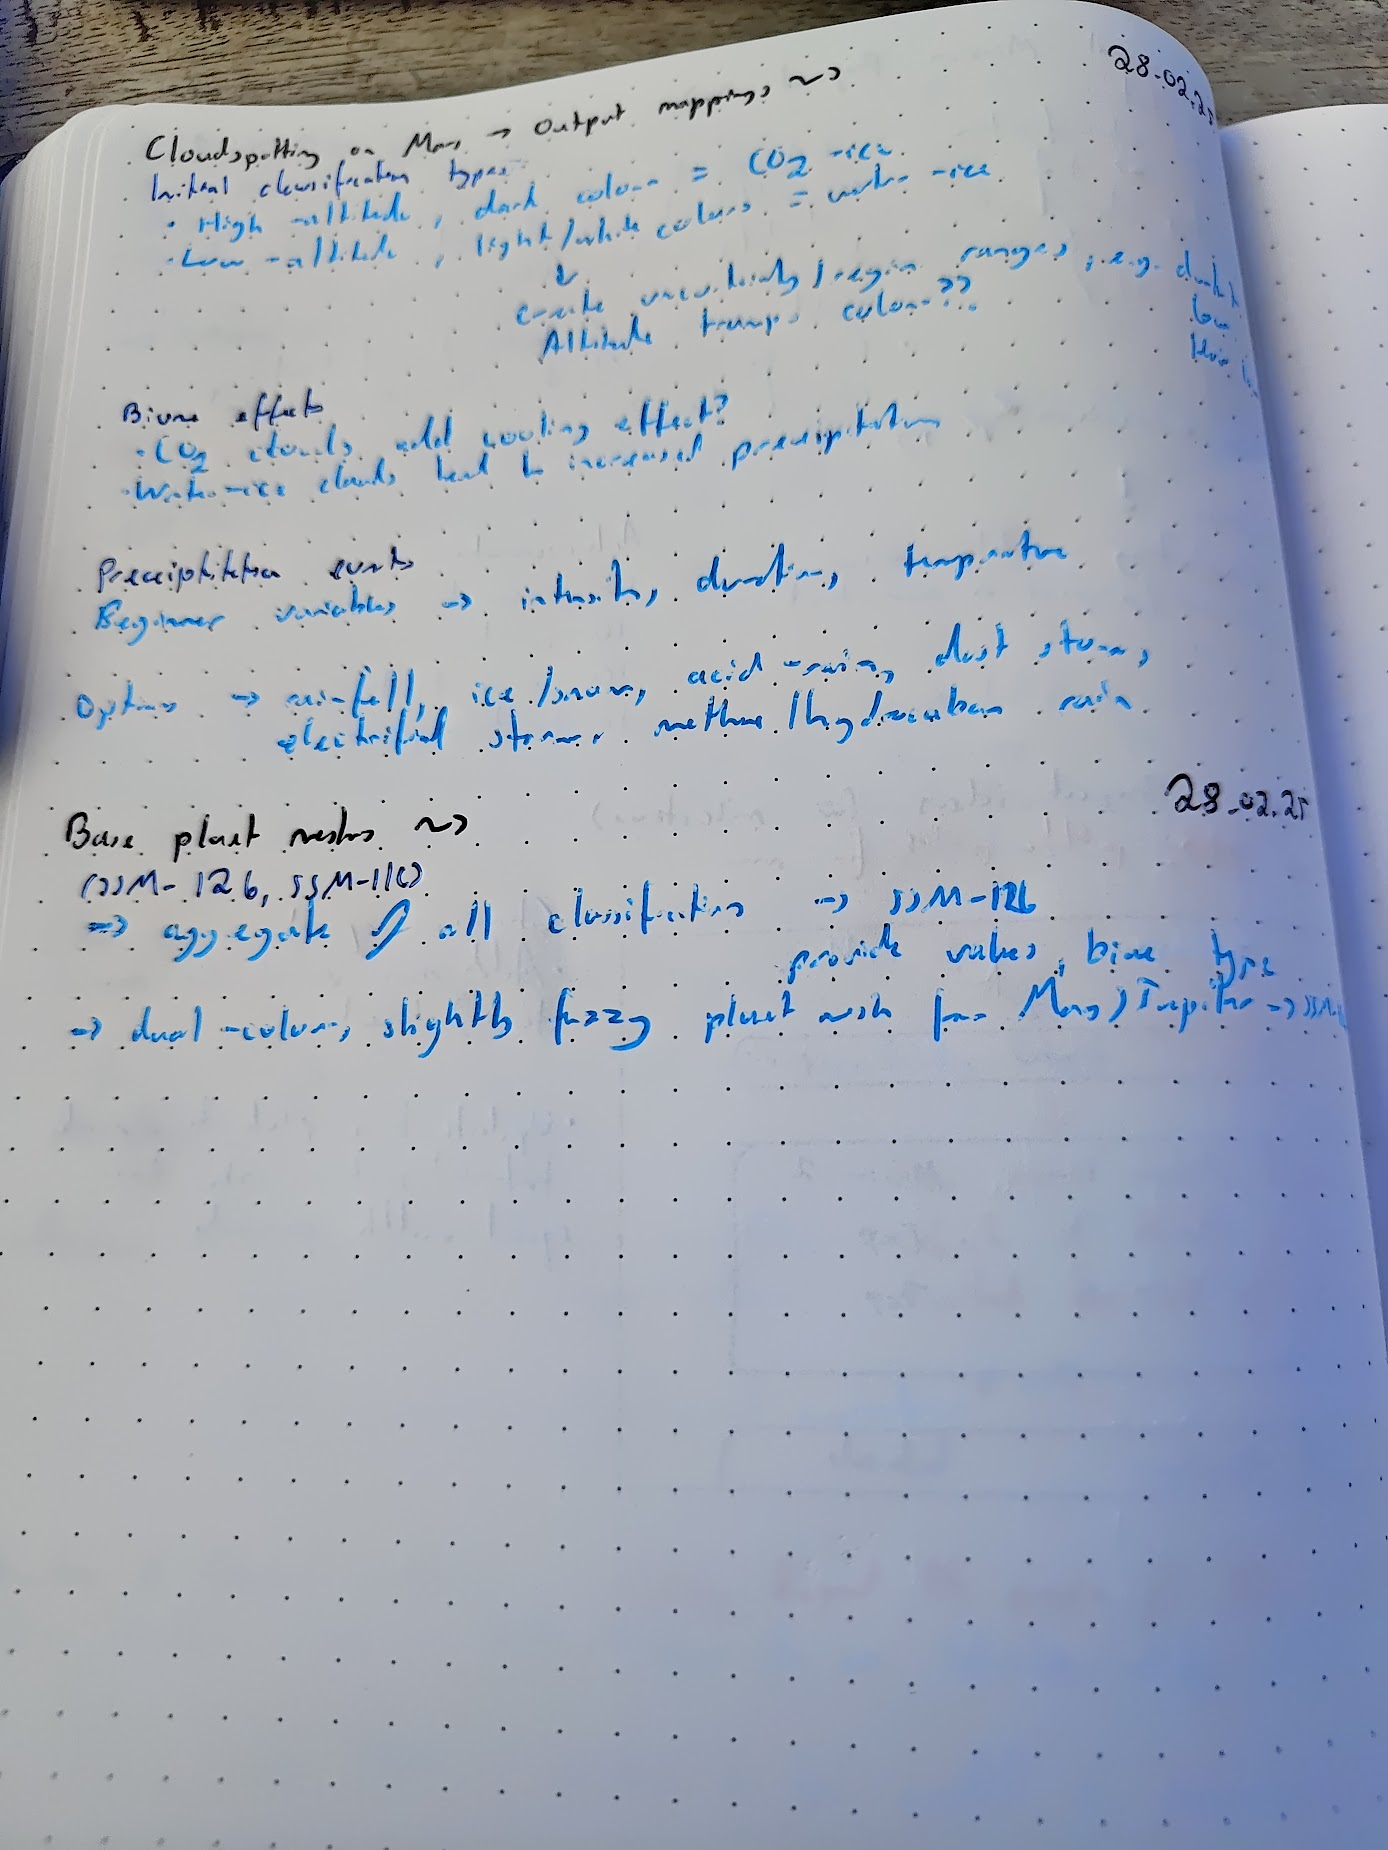 28.02.25
Cloudspotting on Mars → Output mappings ~>
Initial classification types
• High-altitude, dark colour = CO2-ice
• Low-altitude, light/white colours = water-ice
↓
create uncertainty/region ranges, e.g.
Altitude trumps colour??
Biome effects
• CO2 clouds add cooling effect?
• Water-ice clouds lead to increased precipitation
Precipitation events
Beginner variables → intensity, duration, temperature
Options → rainfall, ice/snow, acid-rain, dust storms,
electrified storms, methane/hydrocarbon rain
28.02.25
Base planet meshes ~>
(SSM-126, SSM-116)
⇒ aggregate of all classifications → SSM-126
provide values, biome type
⇒ dual-colour, slightly fuzzy planet mesh for Mars/Jupiter →